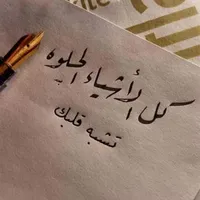 كل الأشياء الحلوه
تشبه قلبك